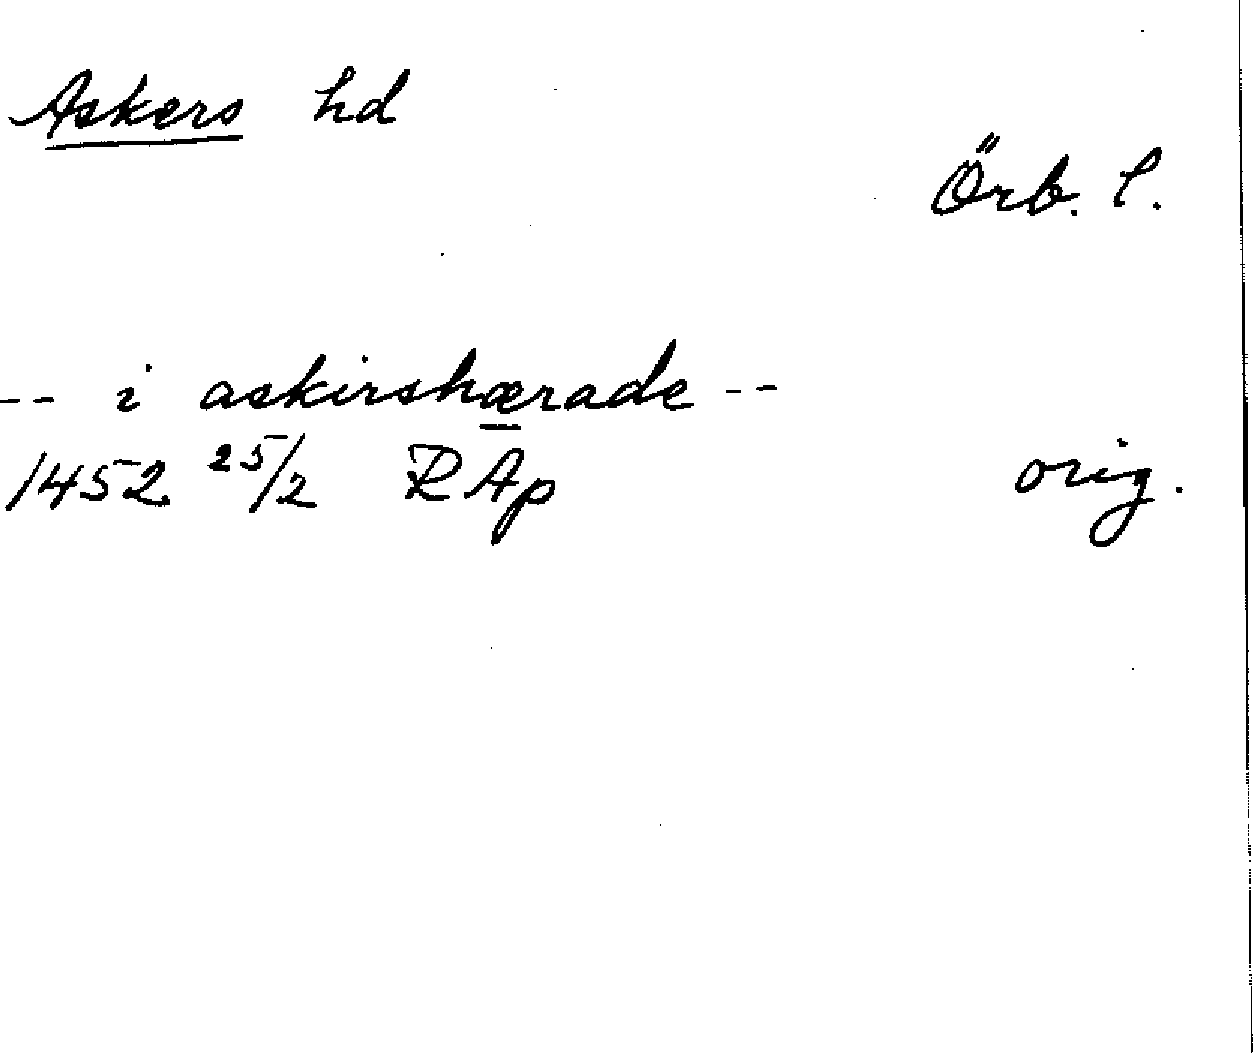 Askers hd
Örb. l.
-- i askirshærade --
1452 25/2 RAp orig.